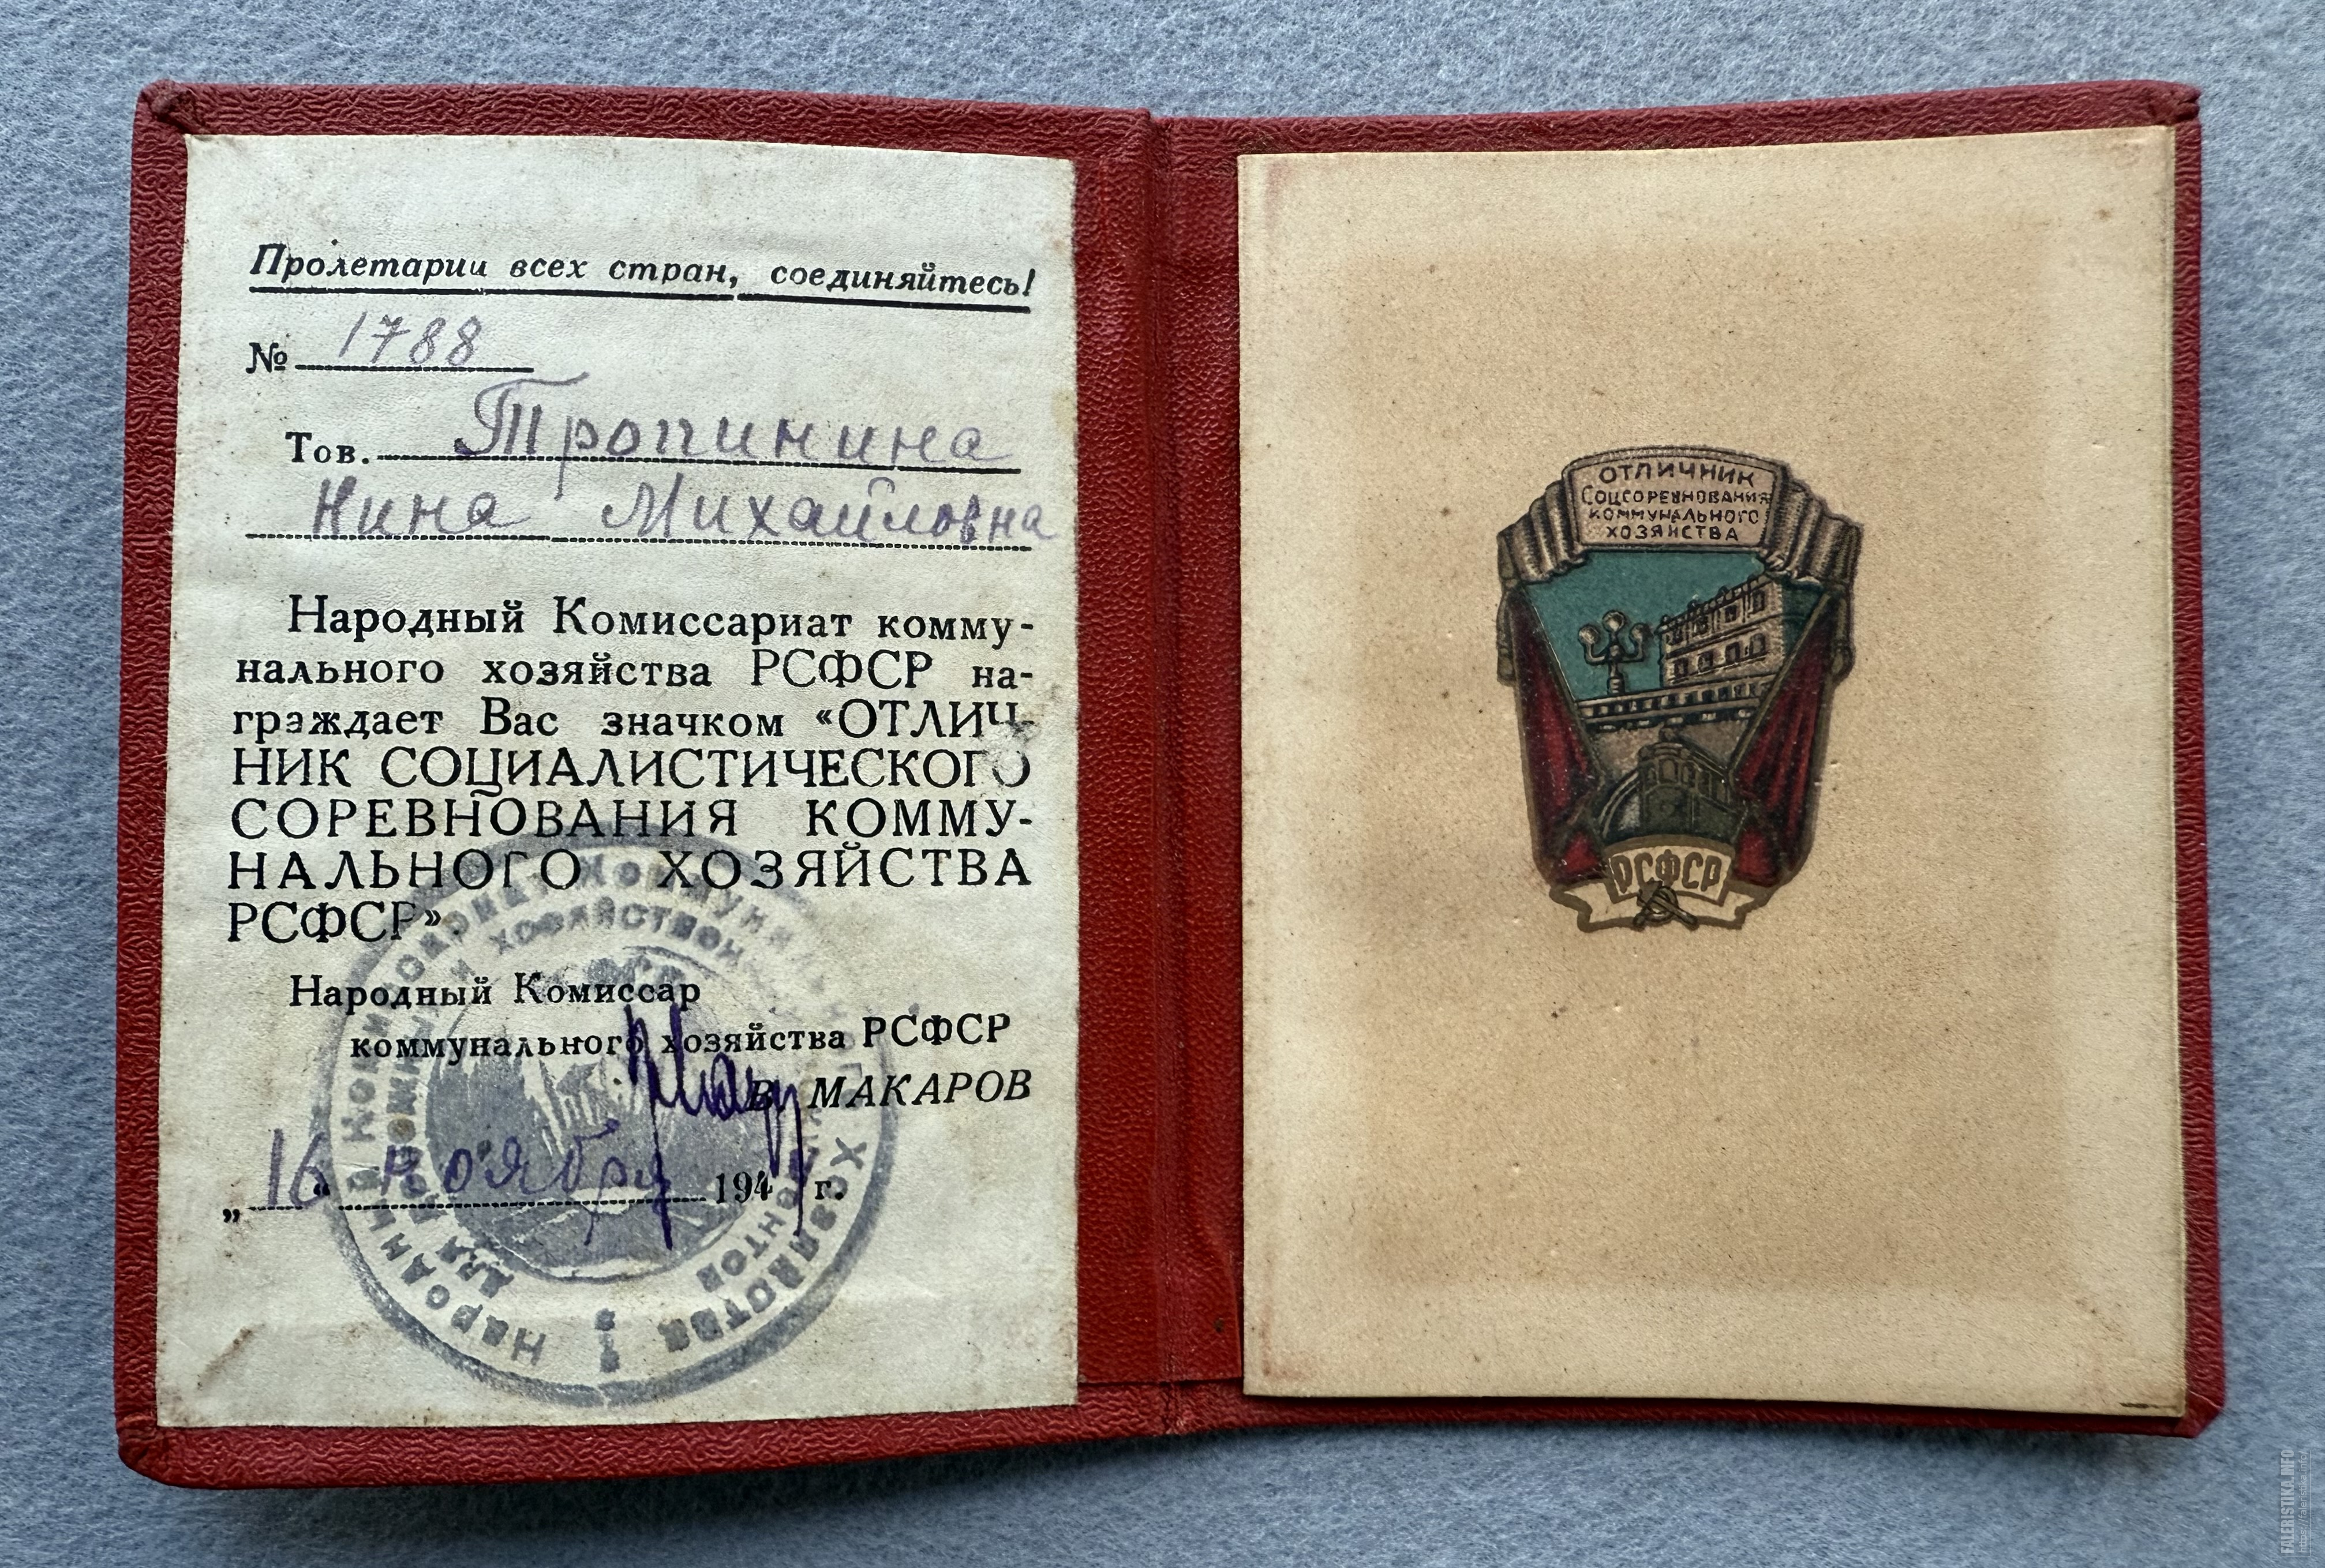 Пролетарии всех стран, соединяйтесь!
№ 1788
Тов. Тропинина
Нина Михайловна
Народный Комиссариат комму-
нального хозяйства РСФСР на-
граждает Вас значком «ОТЛИЧ-
НИК СОЦИАЛИСТИЧЕСКОГО
СОРЕВНОВАНИЯ КОММУ-
НАЛЬНОГО ХОЗЯЙСТВА
РСФСР».
Народный Комиссар
коммунального хозяйства РСФСР
В. МАКАРОВ
„16“ ноября 194 г.
Народный Комиссариат Коммунальн Хозяйства
для документов
ОТЛИЧНИК
СОЦСОРЕВНОВАНИЯ
КОММУНАЛЬНОГО
ХОЗЯЙСТВА
РСФСР
FALERISTIKA.INFO
https://faleristika.info